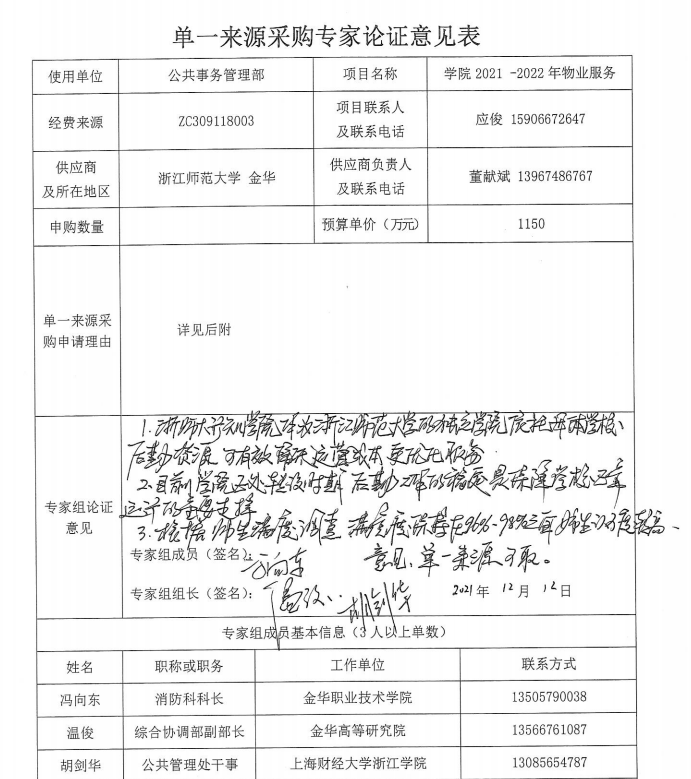 单一来源采购专家论证意见表
使用单位 公共事务管理部 项目名称 学院 2021 -2022 年物业服务
经费来源 ZC309118003 项目联系人及联系电话 应俊 15906672647
供应商及所在地区 浙江师范大学 金华 供应商负责人及联系电话 董献斌 13967486767
申购数量 预算单价（万元） 1150
单一来源采购申请理由 详见后附
专家组论证意见
1. 浙师大行知学院作为浙江师范大学的独立学院 依托母体学校
后勤资源,可有效降低运营成本更优化服务
2. 目前学院正处 时期 后勤工作的稳定是保障学校正常
运行的重要支撑
3. 根据师生满意度调查 满意度保持在96%-98%之间 师生认可度较高、
专家组成员（签名）： 冯向东 意见,单一来源可取。
专家组组长（签名）： 温俊 胡剑华 2021 年 12 月 12 日
专家组成员基本信息（3 人以上单数）
姓名 职称或职务 工作单位 联系方式
冯向东 消防科科长 金华职业技术学院 13505790038
温俊 综合协调部副部长 金华高等研究院 13566761087
胡剑华 公共管理处干事 上海财经大学浙江学院 13085654787